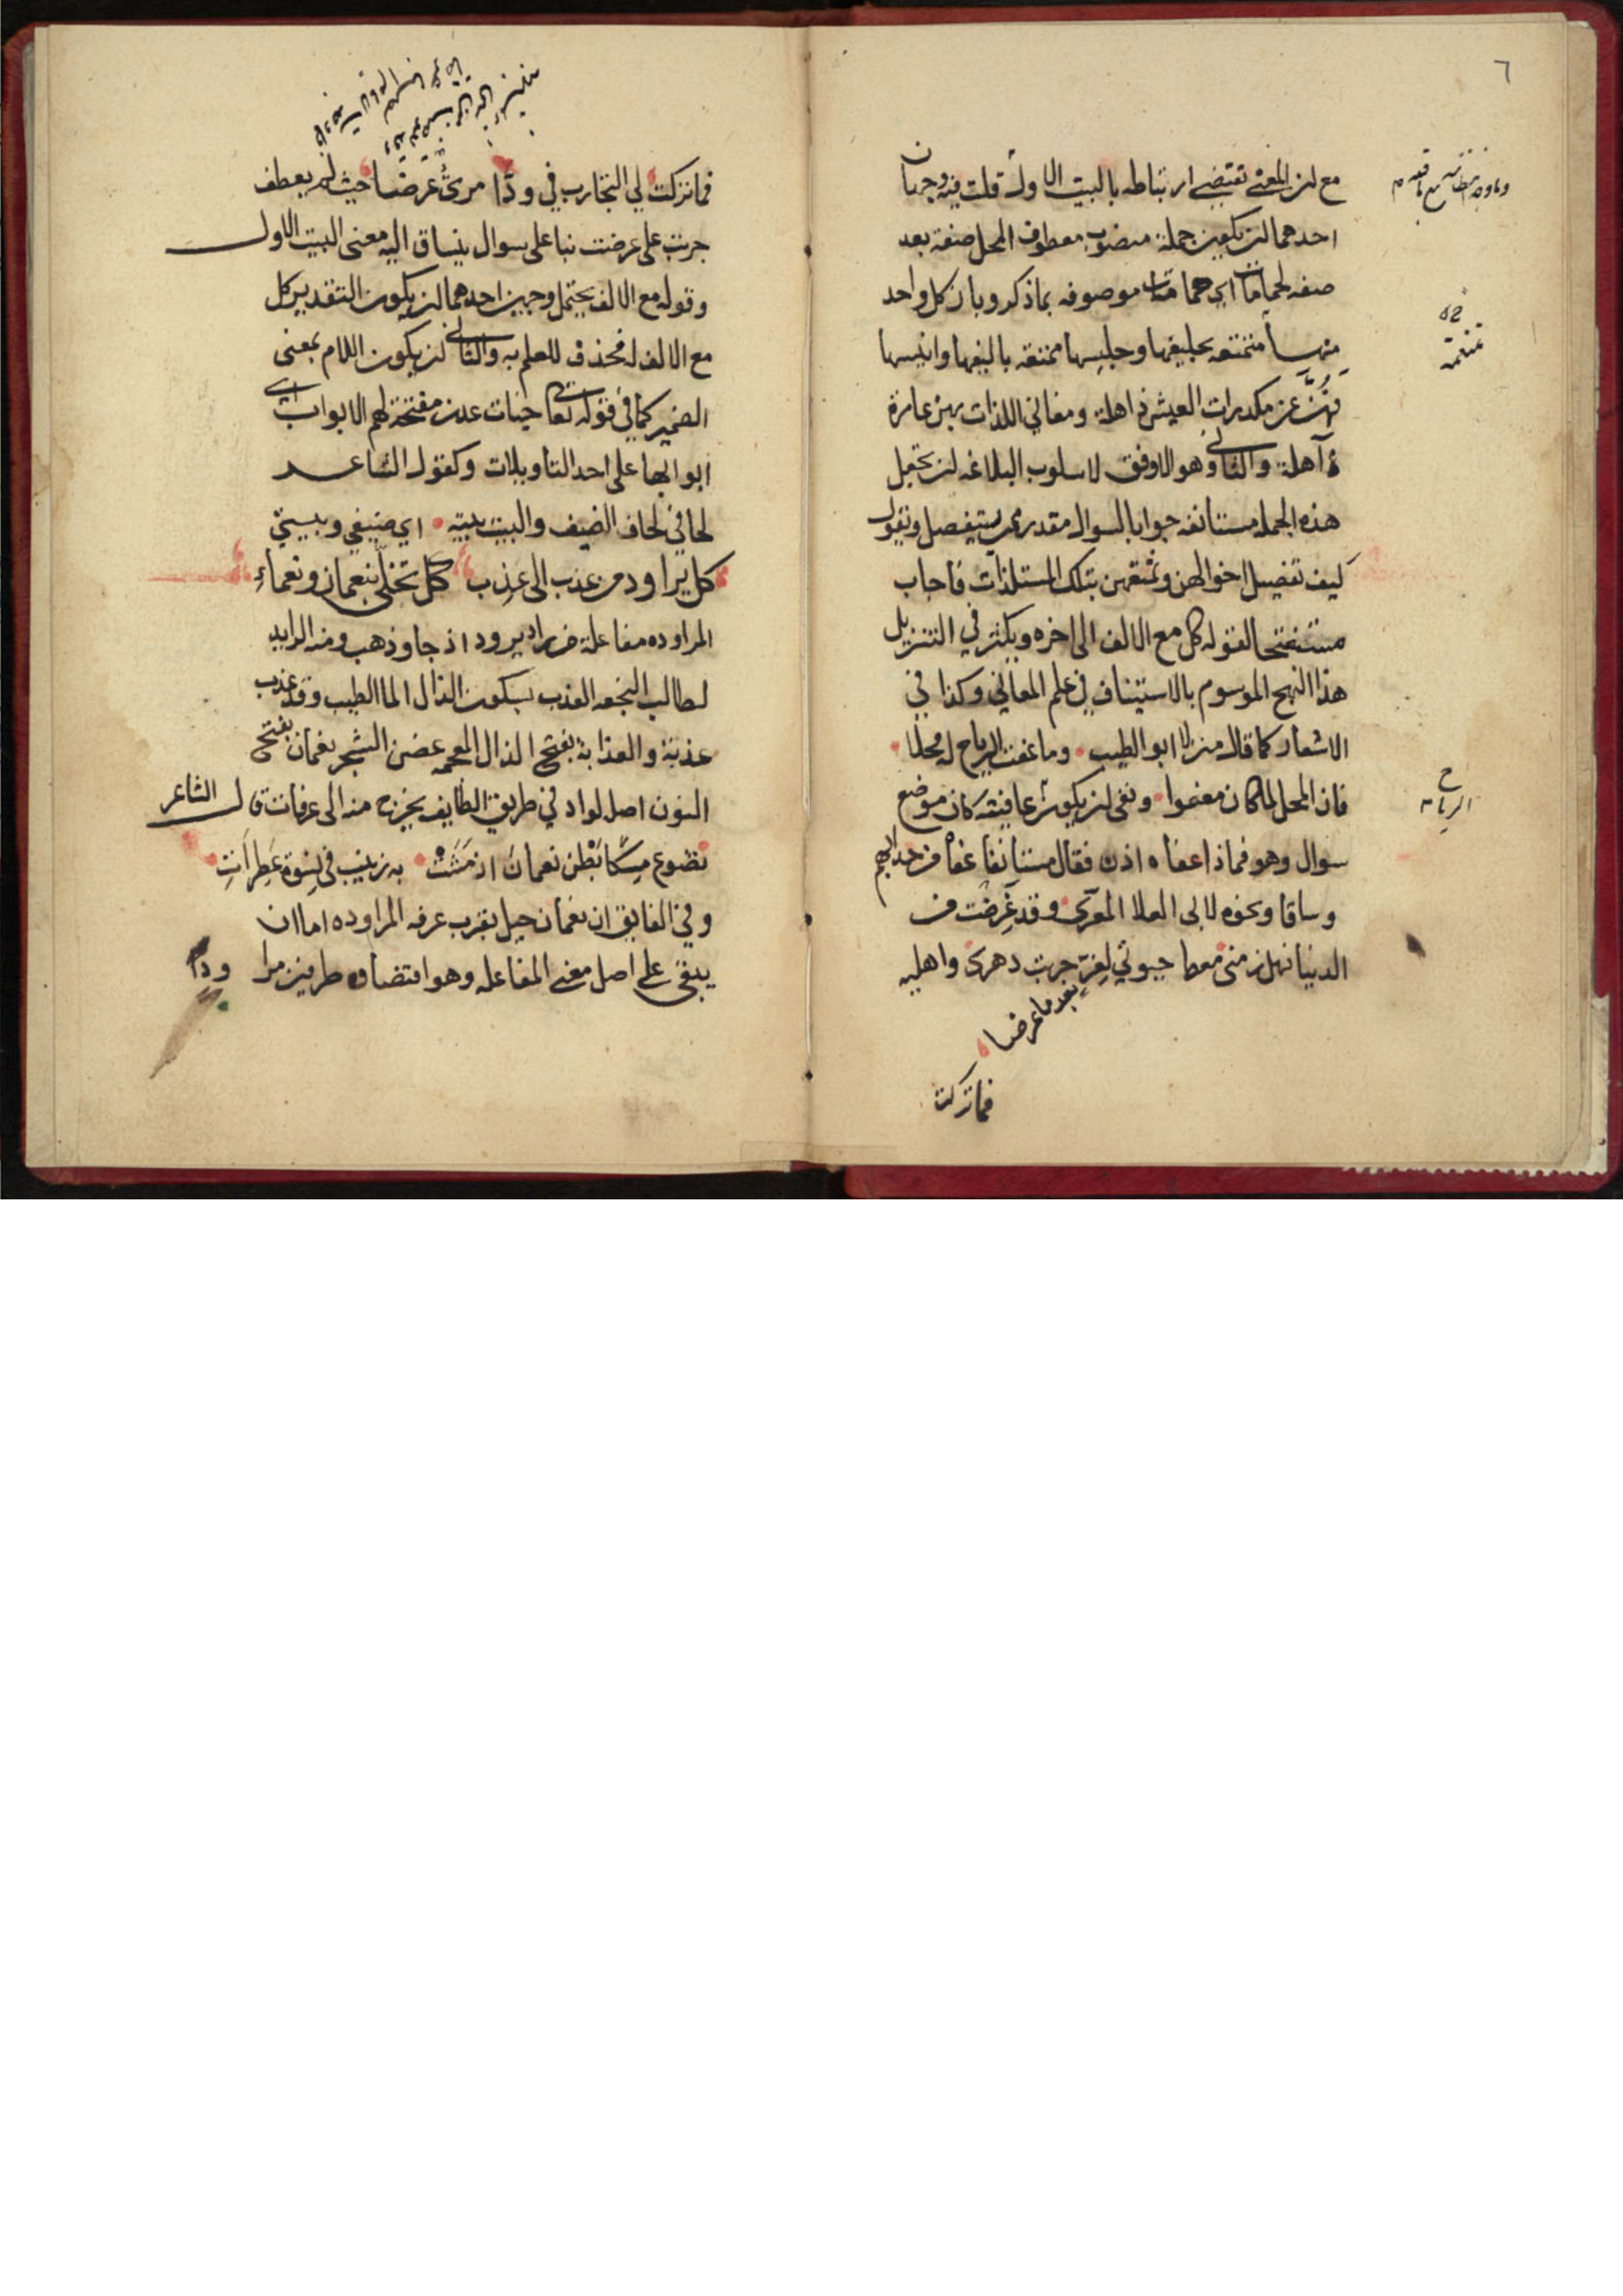 ٦
مع ان المعنى تقتضي ارتباطه بالبيت الاول قلت فيه وجهان
احدهما ان يكون جملة منصوب معطوف المحل صفة بعد
صفه لحمامات اي حمامات موصوفه بما ذكر وبان كل واحد
منها متمتعه بحليفها وجليسها ممتعه باليفها وانيسها
فهن عن مكدرات العيش ذاهلة ومغاني اللذات بهن عامرة
آهلة والثاني وهو الاوفق لاسلوب البلاغه ان تجعل
هذه الجمله مستانفه جوابا لسوال مقدر يستفصل ويقول
كيف تفصيل احوالهن وتمتعهن بتلك المستلذات فاجاب
مستفتحا لقوله كل مع الالف الى اخره ويكثر في التنزيل
هذا النهج الموسوم بالاستيناف في علم المعاني وكذا في
الاشعار كما قال ابو الطيب وما عفت الرياح له محلا
فان المحل لما كان معفوا ونفى ان يكون عافيته كان موضع
سوال وهو فماذا عفاه اذن فقال مستانفا عفاه من حدا بهم
وساقا ونحوه لابي العلا المعري وقد غرضت من
الدنيا فهل زمني معط حيوتي لغر جرت دهرى واهليه
بعد ما غرضا
فما تركت
الرياح
فما تركت لي التجارب في ود امرئ غرضا حيث لم يعطف
جربت على غرضت بنا على سوال ينساق اليه معنى البيت الاول
وقوله مع الالف يحتمل وجهين احدهما ان يكون التقدير كل
مع الالف له فحذف للعلم به والثاني ان يكون اللام بمعنى
الضمير كما في قوله تعالى جنات عدن مفتحة لهم الابواب اي
ابوابها على احد التاويلات وكقول الشاعر
لحافي لحاف الضيف والبيت بيته اي ضيفي وبيتي
كل يراود من عذب الى عذب كل تخلى بنعمان ونعماء
المراوده مفاعلة من راد يرود اذ جا وذهب ومنه الرايد
لطالب النجعه العذب بسكون الذال الما الطيب وقد عذب
عذبة والعذابة بفتح الذال المعجمه غصن الشجر نعمان بفتح
النون اصل لواد في طريق الطايف يخرج منه الى عرفات قال الشاعر
تضوع مسكا بطن نعمان اذ مشت به زينب في نسوة عطرات
وفي الفايق ان نعمان جبل بقرب عرفه المراوده اما ان
يبقى على اصل معنى المفاعله وهو اقتضاوه طرفين مرا ودا